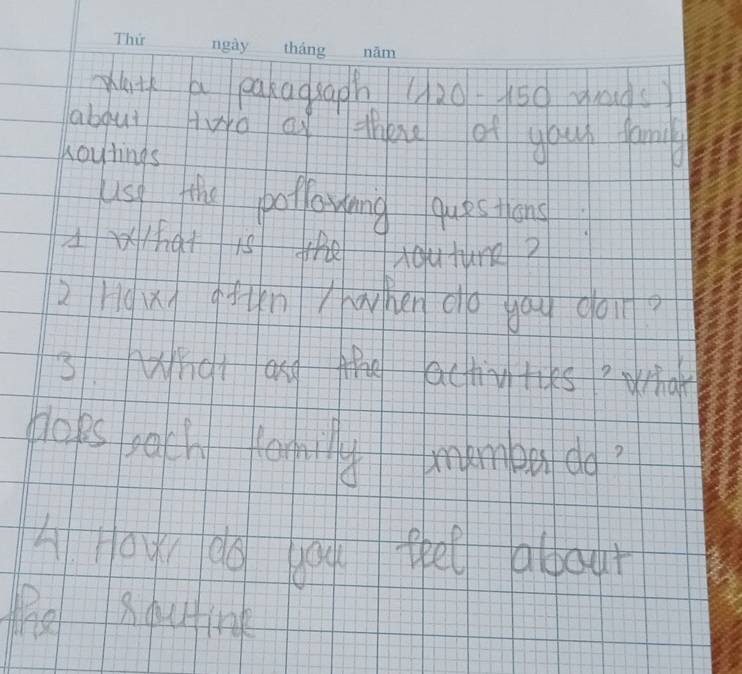 Thứ ngày tháng năm
Write a paragraph (120-150 words)
about two or there of your family
routines
Use the pollowing questions:
1 What is the routune?
2 How often / when do you doit?
3. What are the activities? What
does each family member do?
4. How do you feel about
the routine